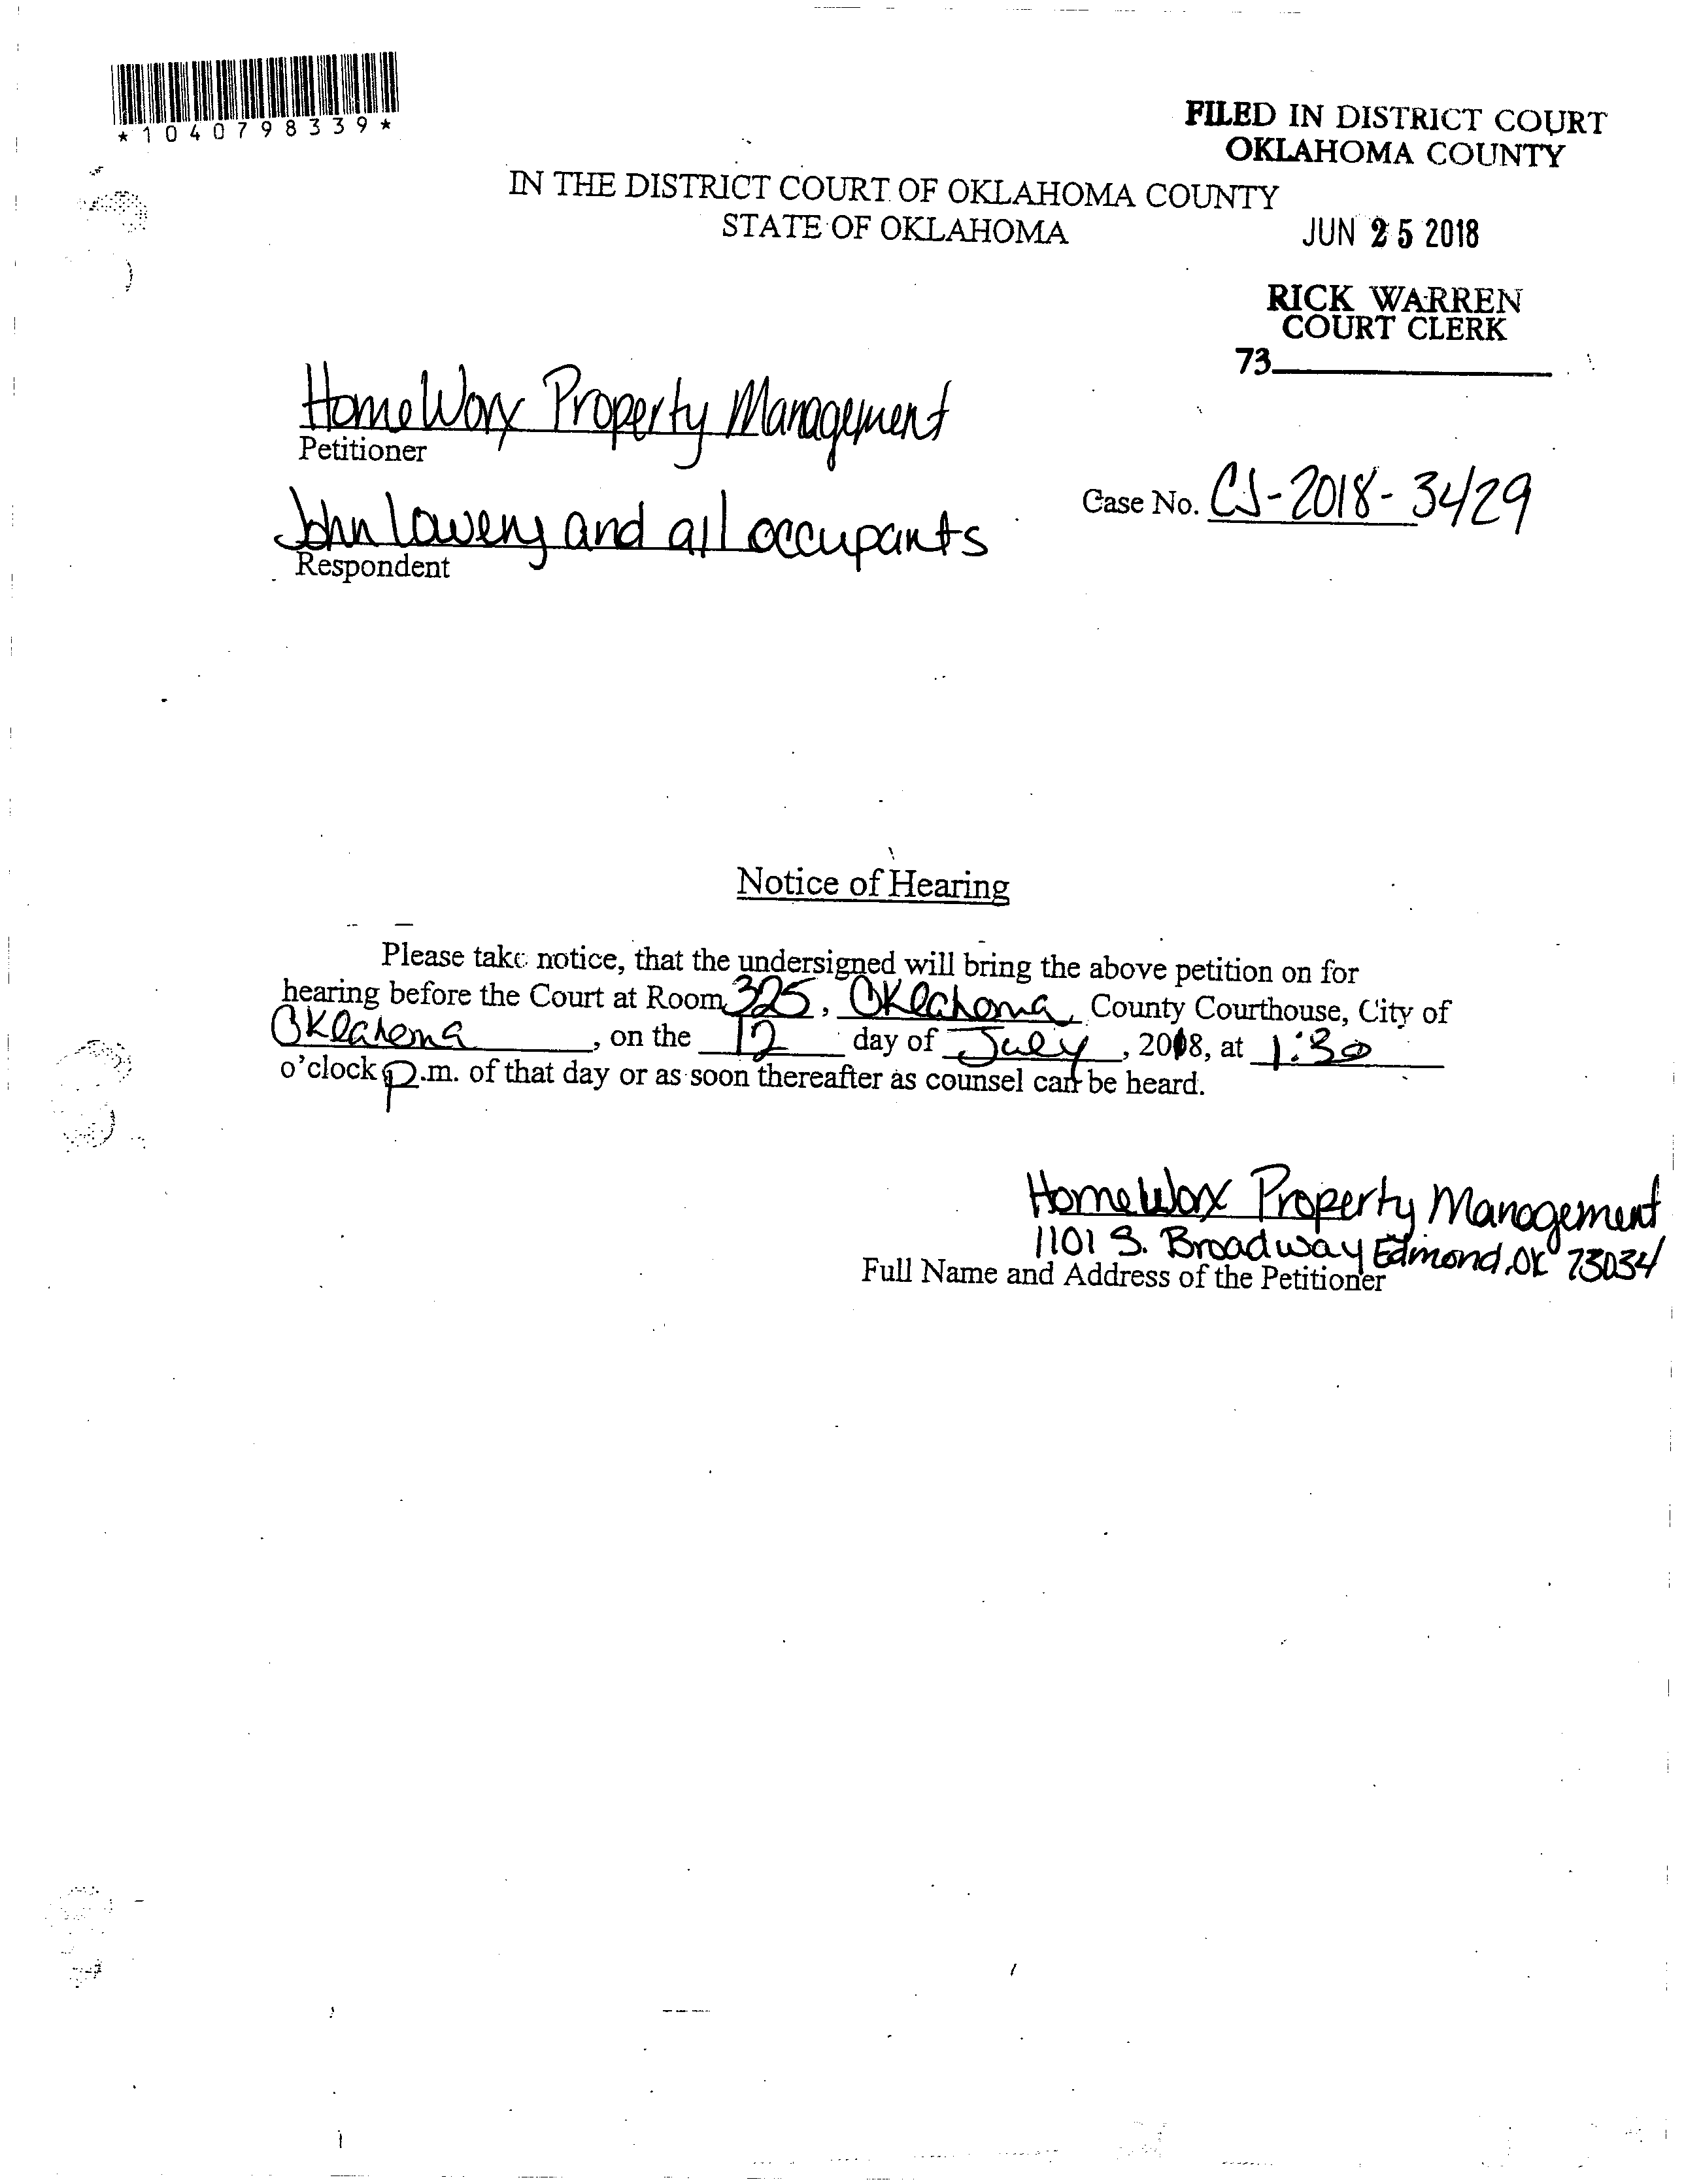 *1040798339*
FILED IN DISTRICT COURT
OKLAHOMA COUNTY
IN THE DISTRICT COURT OF OKLAHOMA COUNTY
STATE OF OKLAHOMA
JUN 25 2018
RICK WARREN
COURT CLERK
73
HomeWorx Property Management
Petitioner
Case No. CJ-2018-3429
John Lowery and all occupants
Respondent
Notice of Hearing
Please take notice, that the undersigned will bring the above petition on for
hearing before the Court at Room 325, Oklahoma, County Courthouse, City of
Oklahoma, on the 12 day of July, 2018, at 1:30
o'clock p.m. of that day or as soon thereafter as counsel can be heard.
HomeWorx Property Management
1101 S. Broadway Edmond, OK 73034
Full Name and Address of the Petitioner